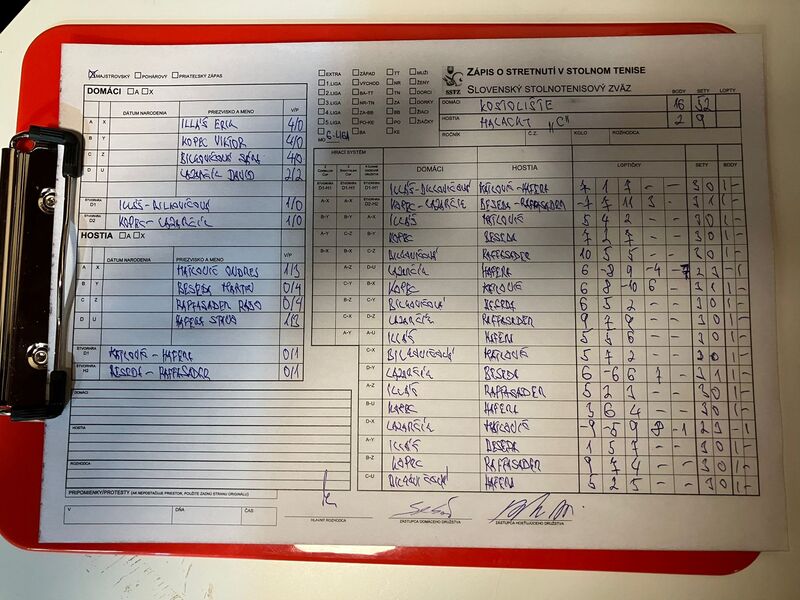 MAJSTROVSKÝ POHÁROVÝ PRIATEĽSKÝ ZÁPAS
DOMÁCI A X
DÁTUM NARODENIA PRIEZVISKO A MENO V/P
A X ILLÁŠ ERIK 4/0
B Y KOPEC VIKTOR 4/0
C Z 4/0
D U LAZARČÍK DAVID 2/2
ŠTVORHRA D1 1/0
ŠTVORHRA D2 KOPEC - LAZARČÍK 1/0
HOSTIA A X
DÁTUM NARODENIA PRIEZVISKO A MENO V/P
A X ONDREJ 1/3
B Y BESEDA MARTIN 0/4
C Z RAFFASADER RADO 0/4
D U HAFERA
ŠTVORHRA HAFERA 0/1
ŠTVORHRA H2 BESEDA - RAFFASADER 0/1
DOMÁCI
HOSTIA
ROZHODCA
PRIPOMIENKY/PROTESTY (AK NEPOSTAČUJE PRIESTOR, POUŽITE ZADNÚ STRANU ORIGINÁLU)
V DŇA ČAS
EXTRA ZÁPAD TT MUŽI
1.LIGA VÝCHOD NR ŽENY
2.LIGA BA-TT TN DORCI
3.LIGA NR-TN ZA DORKY
4.LIGA ZA-BB BB ŽIACI
5.LIGA PO-KE PO ŽIAČKY
MO 6-LIGA BA KE
SSTZ
ZÁPIS O STRETNUTÍ V STOLNOM TENISE
SLOVENSKÝ STOLNOTENISOVÝ ZVÄZ
BODY SETY LOPTY
DOMÁCI KOSTOLIŠTE 16 52
HOSTIA MALACKY "C" 2 9
ROČNÍK Č.Z. KOLO ROZHODCA
HRACÍ SYSTÉM
DOMÁCI HOSTIA LOPTIČKY SETY BODY
D1-H1 D1-H1 HAFERA 7 1 3 - - 3 0 1 -
A-X A-X KOPEC - LAZARČÍK BESEDA - RAFFASADER -7 7 11 3 - 3 1 1 -
B-Y B-Y A-X ILLÁŠ 5 4 2 - - 3 0 1 -
A-Y C-Z B-Y KOPEC BESEDA 7 2 7 - - 3 0 1 -
B-X B-X C-Z RAFFASADER 10 5 5 - - 3 0 1 -
A-Z D-U LAZARČÍK HAFERA 6 -8 9 -4 -7 2 3 - 1
C-Y B-X KOPEC 6 8 -10 6 - 3 1 1 -
B-Z C-Y BESEDA 6 5 2 - - 3 0 1 -
C-X D-Z LAZARČÍK RAFFASADER 9 7 8 - - 3 0 1 -
A-Y A-U ILLÁŠ HAFERA 5 5 6 - - 3 0 1 -
C-X 5 7 2 - - 3 0 1 -
D-Y LAZARČÍK BESEDA 6 -6 6 7 - 3 1 1 -
A-Z ILLÁŠ RAFFASADER 5 2 3 - - 3 0 1 -
B-U KOPEC HAFERA 3 6 4 - - 3 0 1 -
D-X LAZARČÍK -9 -5 9 8 -1 2 3 - 1
A-Y ILLÁŠ BESEDA 1 5 7 - - 3 0 1 -
B-Z KOPEC RAFFASADER 9 7 4 - - 3 0 1 -
C-U HAFERA 5 2 5 - - 3 0 1 -
HLAVNÝ ROZHODCA ZÁSTUPCA DOMÁCEHO DRUŽSTVA ZÁSTUPCA HOSŤUJÚCEHO DRUŽSTVA